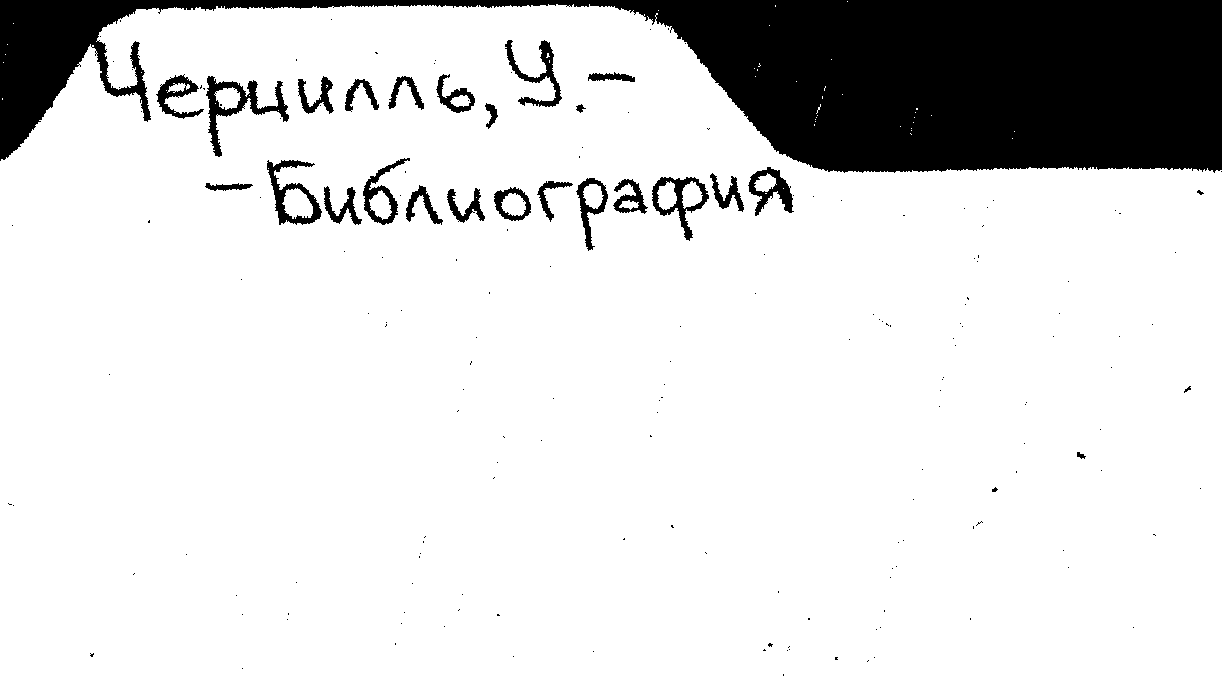 Черчилль, У. –
– Библиография